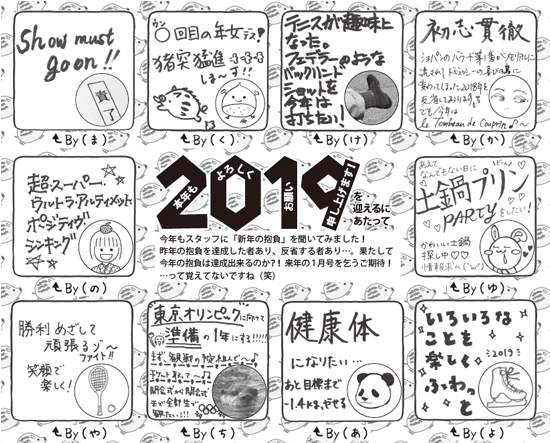 Show must
go on!!
責了
By(ま)
○回目の年女デス!
猪突猛進
しまーす!!
By(く)
テニスが趣味に
なった。
フェデラーのような
バックハンド
ショットを
今年は
打ちたい!
By(け)
初志貫徹
ショパンのバラード第1番が
でも今年は
le Tombeau de Couprin♪〜
By(か)
超・スーパー・
ウルトラ・アルティメット
ポジティヴ
シンキング
By(の)
本年も
よろしく
お願い
申し上げます!
2019
を
迎えるに
あたって
今年もスタッフに「新年の抱負」を聞いてみました!
昨年の抱負を達成した者あり、反省する者あり…。果たして
今年の抱負は達成出来るのか?!来年の1月号を乞うご期待!
…って覚えてないですね(笑)
あえて
なんでもない日に
土鍋プリン
PARTYをしたい!
かわいい土鍋
探し中♡♡
情報求ム
By(ゆ)
勝利めざして
頑張るゾ〜
ファイト!!
笑顔で
楽しく!
By(や)
東京オリンピックに向けて
準備の1年にする!!!!!
まず、観戦の予定組んで〜♪
チケット取って〜♪
開会式から閉会式
まで全部生で
観たい!!!
By(ち)
健康体
になりたい…
あと目標まで
-1.4kgやせる
By(あ)
いろいろな
ことを
楽しく
ふわっと
2019
By(よ)